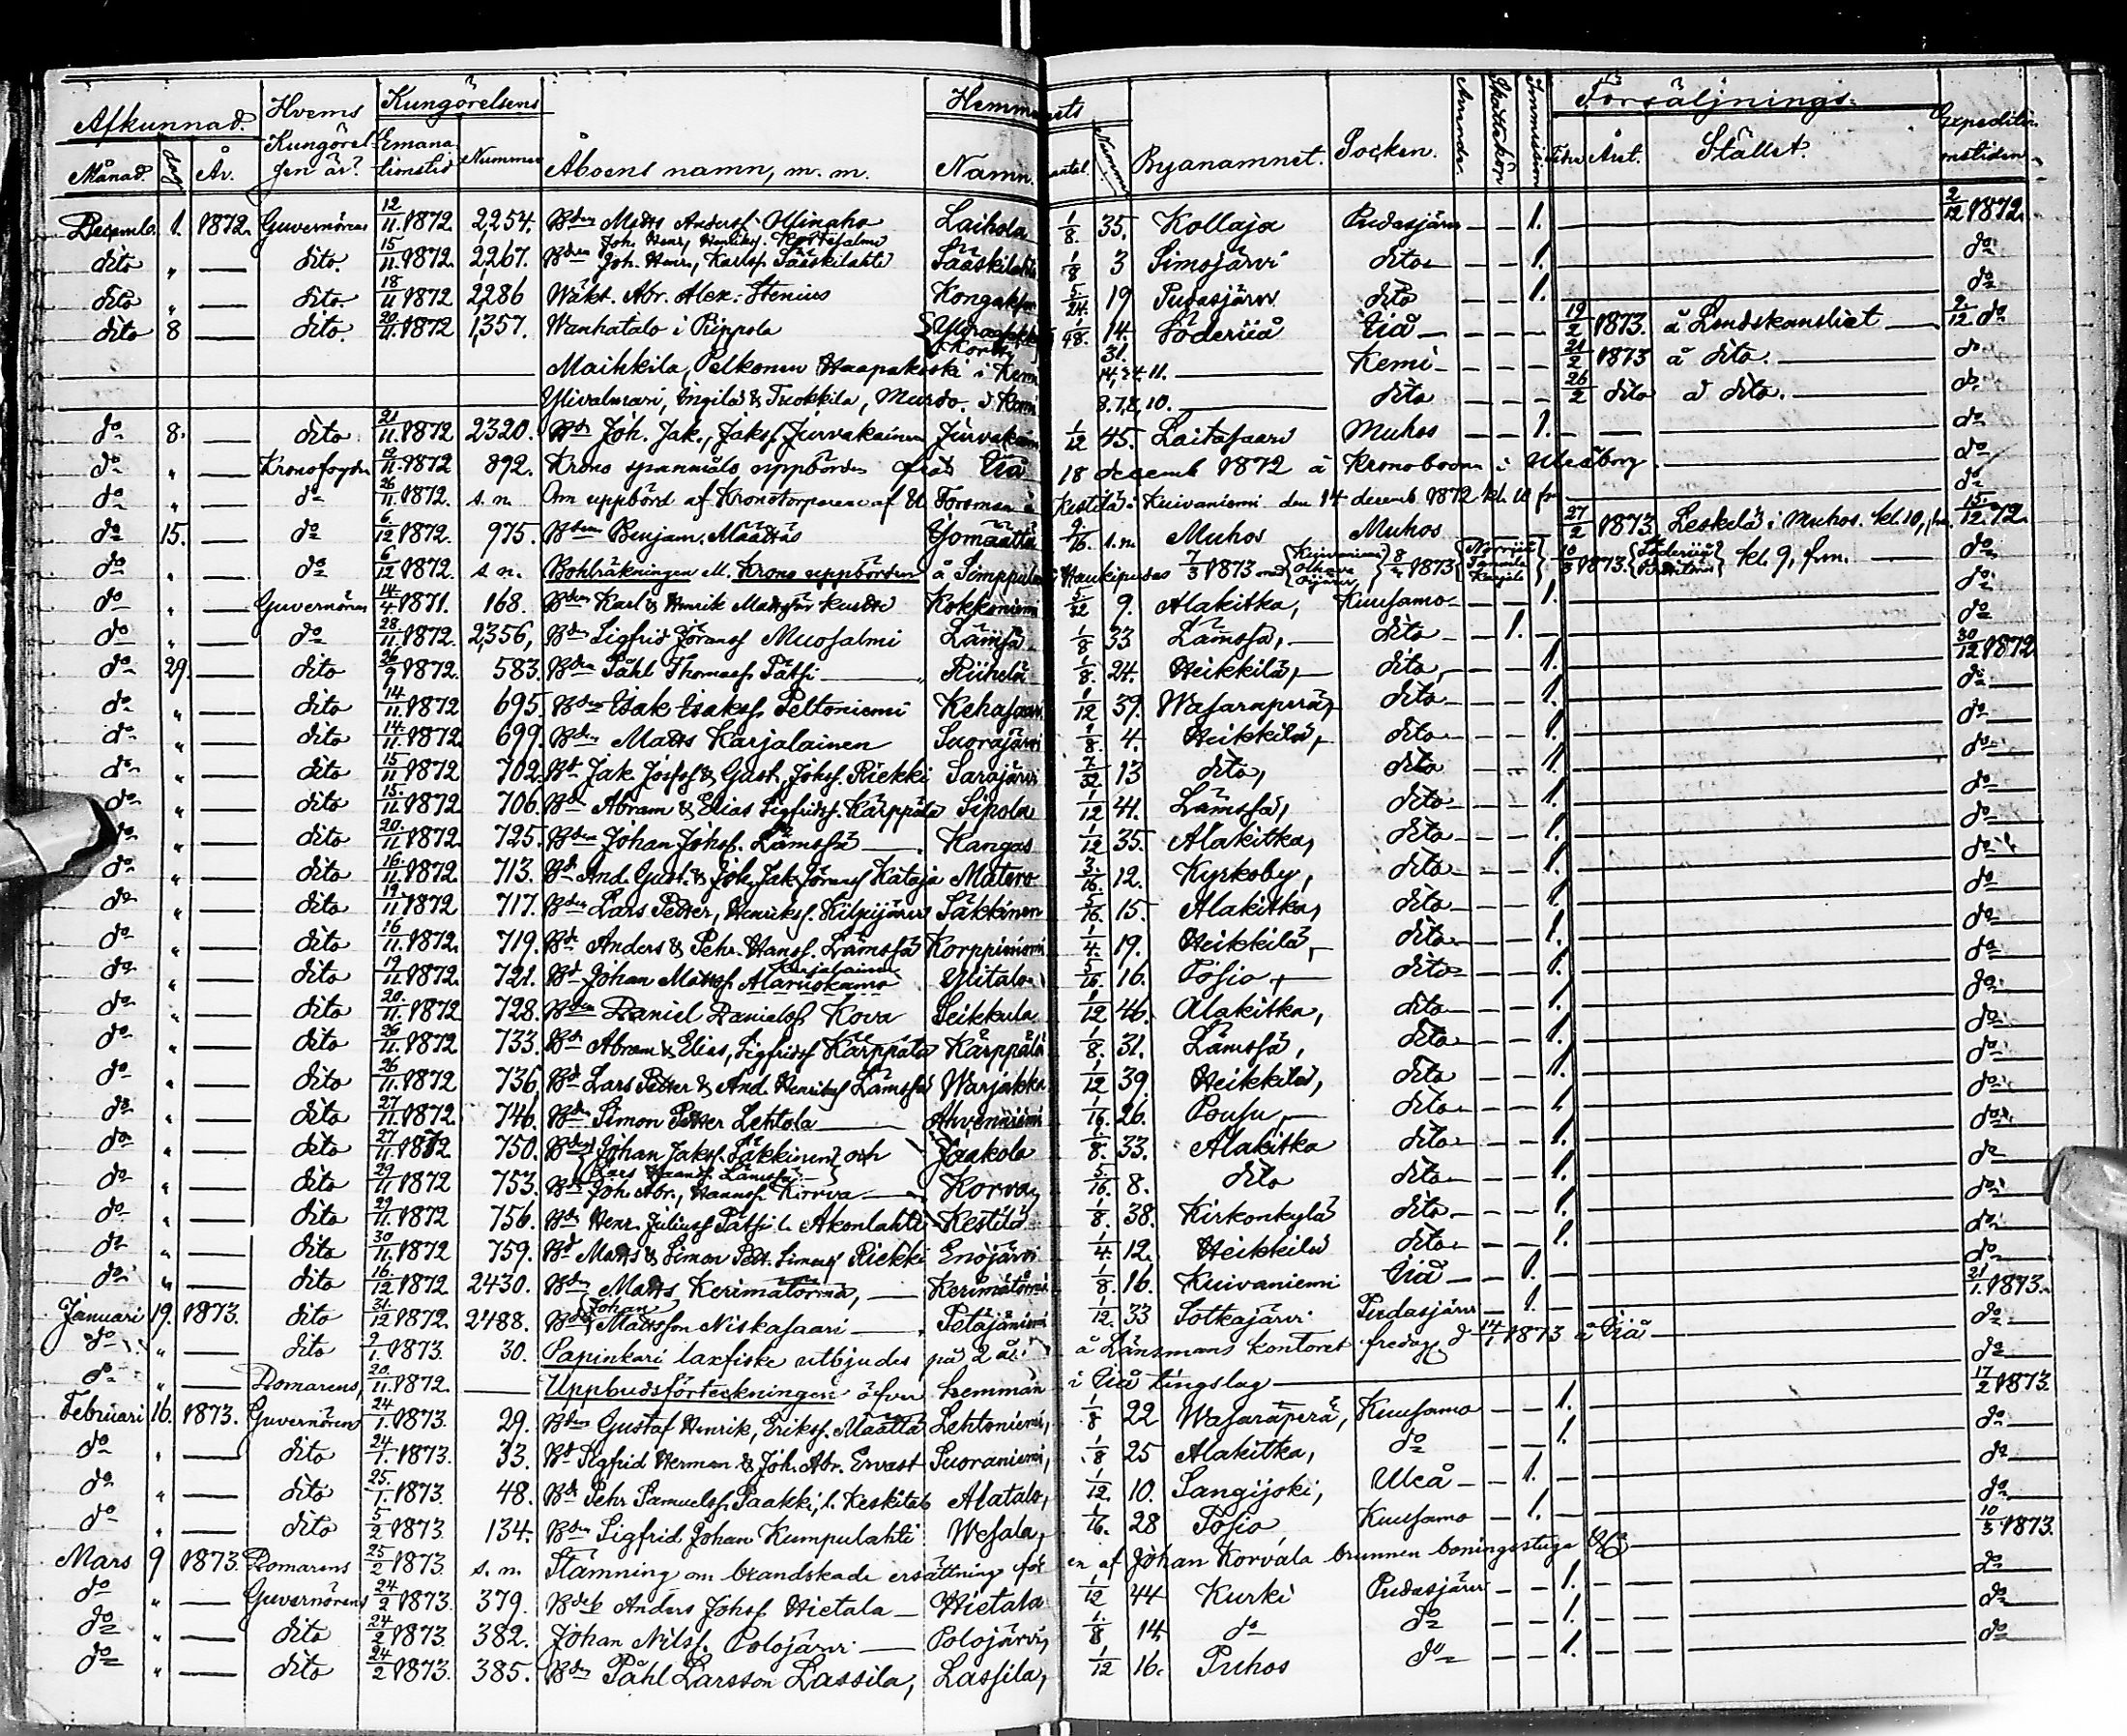 Afkunnad. Hvems Kungörelsens Hemmanets Försäljnings- Expeditions
Månad. dag År. Kungörelsen är? Emanationstid Nummer Åboens namn, m. m. Namn. mantal Nummer Byanamnet. Socken. Immission Året. Stället. tiden
Decemb. 1. 1872. Guvernörens 12/11 1872. 2,254. Bden Matts Andersf. Ollinaho Laihola 1/8. 35. Kollaja Pudasjärvi — — 1. 2/12 1872.
Joh. Henr. Henriksf. Kortesalmi
dito „ — dito. 15/11 1872. 2,267. Bden Joh. Henr., Karlsf. Sääskilahti Sääskilahti 1/8 3 Simojärvi dito — — 1. do
dito „ — dito. 18/11 1872 2,286 Wäkt. Abr. Alex. Stenius 5/24. 19 Pudasjärvi dito — — 1. do
dito 8 — dito. 20/11 1872 1,357. Wanhatalo i Piippola 1/48. 14. Söderijå Iiå 19/2 1873. å Landskansliet 2/12 do
Maihkila, Pelkonen Haapakoski i Kemi 31. 14, 24, 11. Kemi 21/2 1873 å dito. do
Ylivalmari, Ingilä & Tuokkila, Murdo. i Kemi 8. 7, 8, 10. dito 26/2 dito å dito. do
do 8. — dito 21/11 1872 2320. Bdn Joh. Jak., Jaksf. Jurvakainen Jurvakainen 1/12 45. Laitasaari Muhos — — 1. do
do „ — Kronofogden 12/11 1872 892. Krono spanmåls uppbörden från Iiå 18 decemb 1872 å Kronoboden i Uleåborg. do
do „ — do 26/11 1872. s. n. Om uppbörd af Kronotorparene af El Forsman å Kestilä i Kuivaniemi den 14 decemb 1872 kl. 10 fm. do
do 15. — do 6/12 1872. 975. Bden Benjam. Määttäs Yömäättä 9/16. s. n. Muhos Muhos 27/2 1873. Leskelä i Muhos. kl. 10, fm. 15/12 72.
do „ — do 6/12 1872. s. n. Bohlräkningen M. Krono uppbörden å Simppula i Haukipudas 7/3 1873 med Kuivaniemi Olhava 8/3 1873 10/3 1873. Söderijå kl. 9, fm. do
do „ — Guvernörens 14/4 1871. 168. Bden Karl & Henrik Kokkoniemi 5/12 9. Alakitka, Kuusamo — — 1. do
do „ — do 28/11 1872. 2,356, Bden Sigfrid Göransf Muosalmi Lämsä 1/8 33 Lämsä, dito — 1. — do
do 29. — dito 26/9 1872. 583. Bden Påhl Thomasf Pätsi Riihelä 1/8. 24. Heikkilä, dito — — 1. 30/12 1872.
do „ — dito 14/11 1872 695 Bden Isak Isaksf. Peltoniemi Kehasaari 1/12 39. Wasaraperä, dito — — 1. do
do „ — dito 14/11. 1872. 699. Bden Matts Karjalainen Suorajärvi 1/8. 4. Heikkilä, dito — — 1. do
do „ — dito 15/11 1872 702. Bd Jak. Josefsf & Gust, Joksf. Riekki Sarajärvi 7/32 13 dito, dito — — 1. do
do „ — dito 15/11. 1872 706. Bd Abram & Elias Sigfridsf. Kärppälä Sipola 1/12 41. Lämssä, dito — — 1. do
do „ — dito 20/11 1872. 725. Bden Johan Johsf. Lämssä Kangas 1/12 35. Alakitka, dito — — 1. do
do „ — dito 16/11 1872. 713. Bd And. Gust. & Joh. Jak. Göransf Kataja Matero 3/16. 12. Kyrkoby, dito — — 1. do
do „ — dito 19/11 1872 717. Bden Lars Petter, Henriksf. Kilpijärvi Säkkinen 5/16. 15. Alakitka, dito — — 1. do
do „ — dito 16/11. 1872. 719. Bd Anders & Pehr. Hansf. Lämssä Korppiniemi 1/4. 19. Heikkilä, dito — — 1. do
Karjalainen
do „ — dito 19/11. 1872. 721. Bd Johan Mattsf. Alaruokamo Ylitalo 5/16. 16. Posio, dito — — 1. do
do „ — dito 20/11. 1872 728. Bden Daniel Danielsf Kova Seikkula 1/12 46. Alakitka, dito — — 1. do
do „ — dito 26/11. 1872 733. Bd Abram & Elias, Sigfridsf Kärppälä Kärppälä 1/8. 31. Lämssä, dito — — 1. do
do „ — dito 26/11. 1872 736. Bd Lars Petter & And. Henriksf Lämssä Warjakka 1/12 39. Heikkilä, dito — — 1. do
do „ — dito 27/11. 1872. 746. Bden Simon Petter Lehtola Ahvenniemi 1/16. 26. Pousu, dito — — 1. do
do „ — dito 27/11. 1872. 750. Bden Johan Jaksf. Säkkinen och Jaakola 1/8. 33. Alakitka dito — — 1. do
Lars Hansf. Lämssä
do „ — dito 29/11 1872 753. Bd Joh. Abr., Hannsf. Korva Korva, 5/16. 8. dito dito — — 1. do
do „ — dito 29/11. 1872 756. Bden Henr. Juliusf Pätsi l. Akonlahti Kestilä 1/8. 38. Kirkonkylä dito — — 1. do
do „ — dito 30/11. 1872 759. Bd Matts & Simon Pett. Simonsf Riekki Enojärvi 1/4. 12. Heikkilä dito — — 1. do
do „ — dito 16/12 1872 2430. Bden Matts Kerimätörmä, Kerimätörmä 1/8. 16. Kuivaniemi Iiå — 1. — do
Johan
Januari 19. 1873. dito 31/12 1872. 2488. Bden Mattsson Niskasaari Petäjäniemi 1/12. 33 Sotkajärvi Pudasjärvi — 1. — 21/1. 1873.
do „ — dito 9/1. 1873. 30. Papinkari laxfiske utbjudes på 2 år å Länsmans kontoret fredag d 14/1 1873 å Iiå do
do „ — Domarens, 20/11. 1872. — Uppbudsförteckningen öfver hemman i Iiå tingslag do
Februari 16. 1873. Guvernörens 24/1. 1873. 29. Bden Gustaf Henrik, Eriksf. Määttä Lehtoniemi, 1/8 22 Wasaraperä, Kuusamo — — 1. 17/2 1873
do „ — dito 24/1. 1873. 33. Bd Sigfrid Herman & Joh. Abr. Ervast Suoraniemi, 1/8 25 Alakitka, do — — 1. do
do „ — dito 25/1. 1873. 48. Bd Pehr Samuelsf. Paakki, l. Keskitalo Alatalo, 1/12. 10. Sangijoki, Uleå — 1. — do
do „ — dito 5/2 1873. 134. Bden Sigfrid Johan Kumpulahti Wesala, 1/16. 28 Posio Kuusamo — 1. — do
Mars 9 1873. Domarens 25/2 1873. s. n. Stämning om brandskade ersättning för en af Johan Korvala brunnen boningsstuga &c 10/3 1873.
do „ — Guvernörens 24/2 1873. 379. Bden Anders Johsf. Hietala Hietala 1/12 44 Kurki Pudasjärvi — — 1. do
do „ — dito 24/2 1873. 382. Johan Nilsf. Polojärvi Polojärvi, 1/8 14, do do — — 1. do
do „ — dito 24/2 1873. 385. Bden Påhl Larsson Lassila, Lassila, 1/12 16. Puhos do — — 1. do